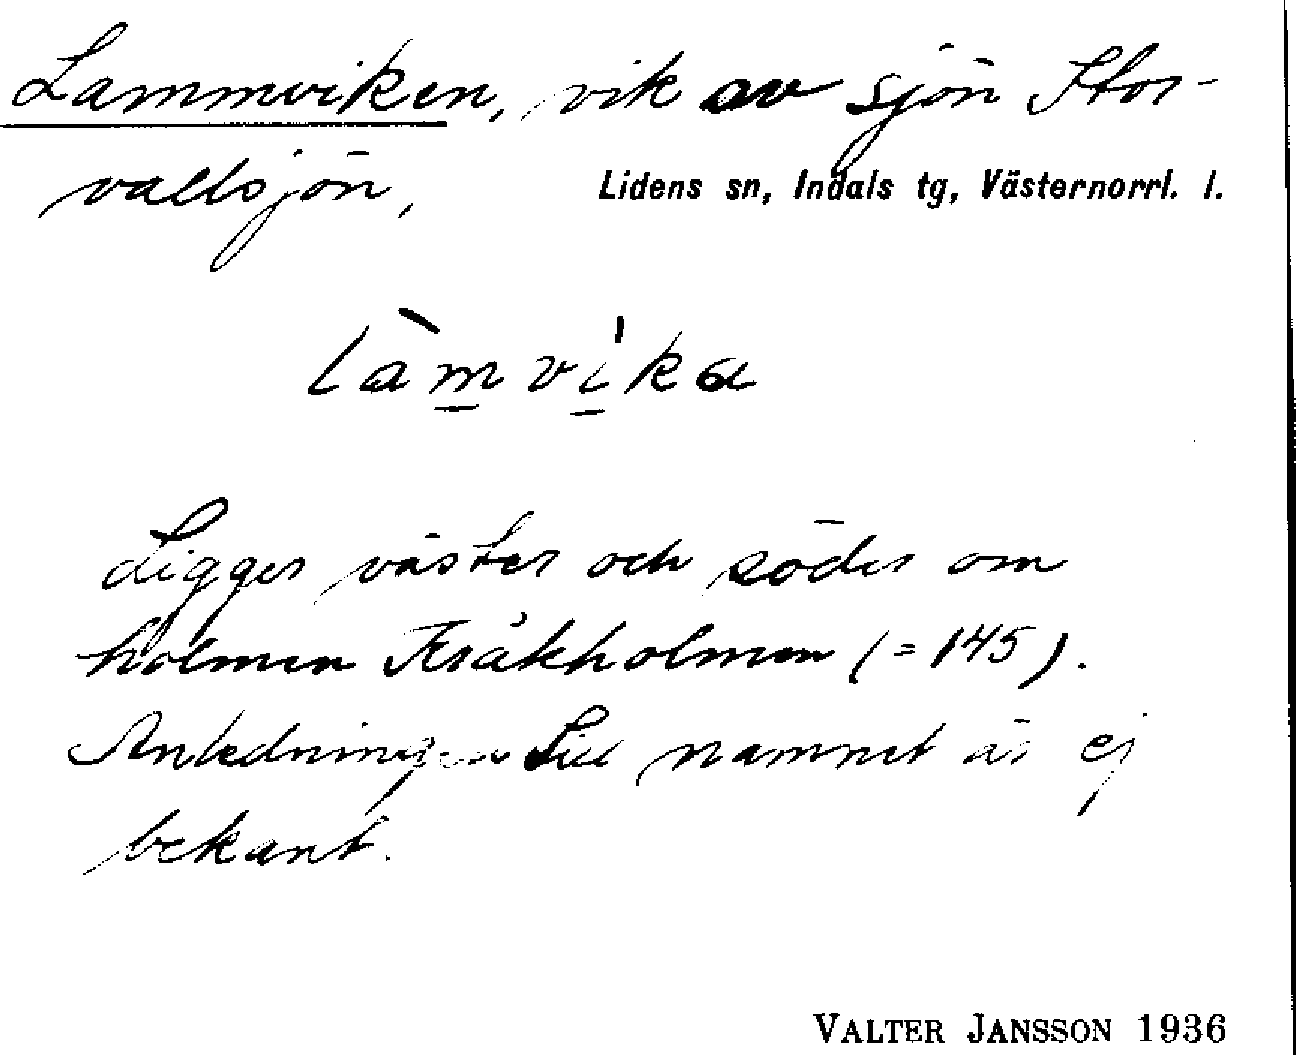 Lammviken, vik av sjön Stor-
vallsjön,
Lidens sn, Indals tg, Västernorrl. l.
làmvika
Ligger väster och söder om
holmen Kråkholmen (=145).
Anledningen till namnet är ej
bekant.
VALTER JANSSON 1936